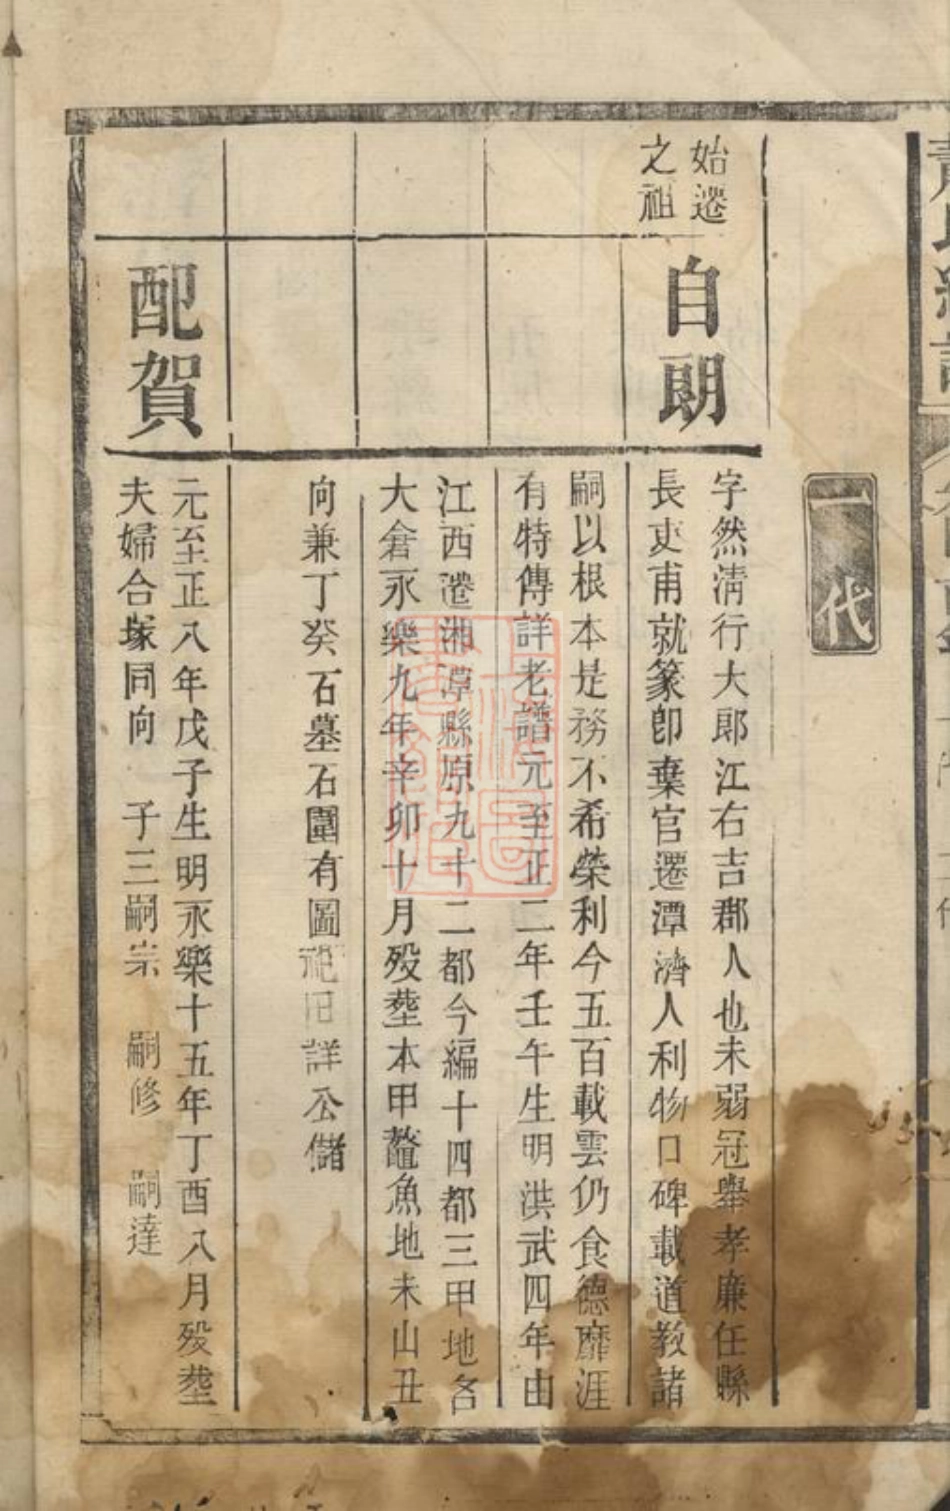 一代
始遷
之祖
自朗
字然清行大郎江右吉郡人也未弱冠舉孝廉任縣
長吏甫就篆卽棄官遷潭濟人利物口碑載道教諸
嗣以根本是務不希榮利今五百載雲仍食德靡涯
有特傳詳老譜元至正二年壬午生明洪武四年由
江西遷湘潭縣原九十二都今編十四都三甲地名
大倉永樂九年辛卯十月歿塟本甲鼇魚地未山丑
向兼丁癸石墓石圍有圖 詳公儲
配賀
元至正八年戊子生明永樂十五年丁酉八月歿塟
夫婦合塚同向 子三嗣崇 嗣修 嗣達